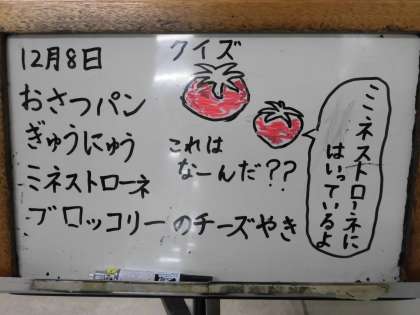 12月8日
おさつパン
ぎゅうにゅう
ミネストローネ
ブロッコリーのチーズやき
クイズ
これは
なーんだ??
ミネストローネに
はいっているよ